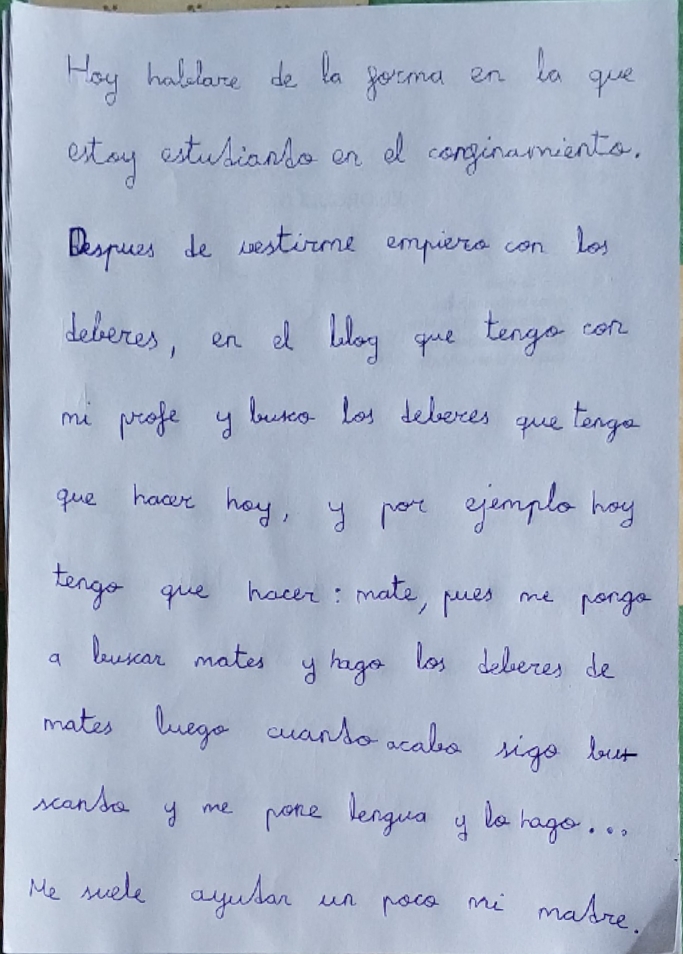 Hoy hablare de la forma en la que
estoy estudiando en el confinamiento.
Despues de vestirme empiezo con los
deberes, en el blog que tengo con
mi profe y busco los deberes que tengo
que hacer hoy, y por ejemplo hoy
tengo que hacer: mate, pues me pongo
a buscar mates y hago los deberes de
mates luego cuando acabo sigo bu
scando y me pone lengua y lo hago...
Me suele ayudar un poco mi madre.